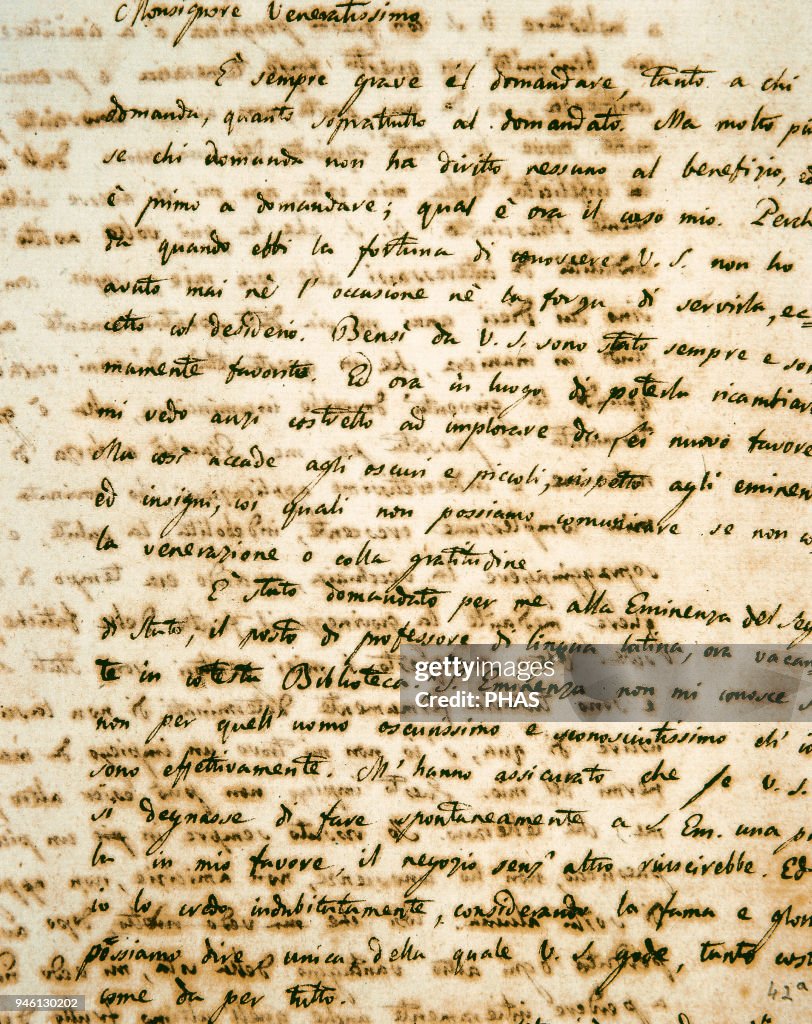 Monsignore Veneratissimo
È sempre grave il domandare, tanto a chi
domanda, quanto sopratutto al domandato. Ma molto più
se chi domanda non ha diritto nessuno al benefizio, ed
è primo a domandare; qual è ora il caso mio. Perch
da quando ebbi la fortuna di conoscere V. S. non ho
avuto mai nè l'occasione nè la forza di servirla, ec=
cetto col desiderio. Bensì da V. S. sono stato sempre e som
mamente favorito. Ed ora in luogo di poterla ricambiar
mi vedo anzi costretto ad implorare da Lei nuovo favore
Ma così accade agli oscuri e piccoli, rispetto agli eminen
ed insigni, coi quali non possiamo comunicare se non co
la venerazione o colla gratitudine.
È stato domandato per me alla Eminenza del Seg
di Stato, il posto di professore di lingua latina, ora vacan
te in cotesta Biblioteca. S. Eminenza non mi conosce s
non per quell'uomo oscurissimo e sconosciutissimo ch'io
sono effettivamente. M'hanno assicurato che se V. S.
si degnasse di fare spontaneamente a S. Em. una pa
la in mio favore, il negozio senz'altro riuscirebbe. Ed
io lo credo indubitatamente, considerando la fama e glori
possiamo dire unica della quale V. S. gode, tanto cost
come da per tutto.
42a
gettyimages
Credit: PHAS
946130202